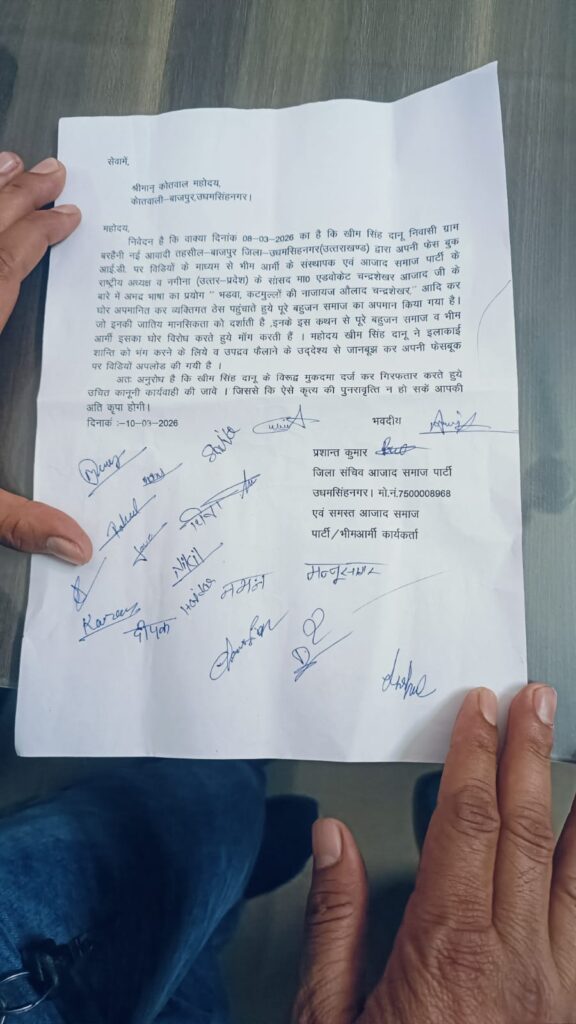 सेवामें,
श्रीमान् कोतवाल महोदय,
कोतवाली–बाजपुर,उधमसिंहनगर।
महोदय,
निवेदन है कि वाक्या दिनांक 08-03-2026 का है कि खीम सिंह दानू निवासी ग्राम
बरहैनी नई आवादी तहसील–बाजपुर जिला–उधमसिंहनगर(उत्तराखण्ड) द्वारा अपनी फेस बुक
आई.डी. पर विडियों के माध्यम से भीम आर्मी के संस्थापक एवं आजाद समाज पार्टी के
राष्ट्रीय अध्यक्ष व नगीना (उत्तर–प्रदेश) के सांसद मा0 एडवोकेट चन्द्रशेखर आजाद जी के
बारे में अभद्र भाषा का प्रयोग " भडवा, कटमुल्लों की नाजायज औलाद चन्द्रशेखर," आदि कर
घोर अपमानित कर व्यक्तिगत ठेस पहुंचाते हुये पूरे बहुजन समाज का अपमान किया गया है।
जो इनकी जातिय मानसिकता को दर्शाती है ,इनके इस कथन से पूरे बहुजन समाज व भीम
आर्मी इसका घोर विरोध करते हुये मॉग करती है । महोदय खीम सिंह दानू ने इलाकाई
शान्ति को भंग करने के लिये व उपद्रव फैलाने के उद्देश्य से जानबूझ कर अपनी फेसबूक
पर विडियों अपलोड की गयी है ।
अतः अनुरोध है कि खीम सिंह दानू के विरूद्ध मुकदमा दर्ज कर गिरफतार करते हुये
उचित कानूनी कार्यवाही की जावे । जिससे कि ऐसे कृत्य की पुनरावृत्ति न हो सकें आपकी
अति कृपा होगी।
दिनांक :–10-03-2026
भवदीय
प्रशान्त कुमार
जिला संचिव आजाद समाज पार्टी
उधमसिंहनगर। मो.नं.7500008968
एवं समस्त आजाद समाज
पार्टी/भीमआर्मी कार्यकर्ता
Rahul
Nikil
Haidar
नमन
दीपक